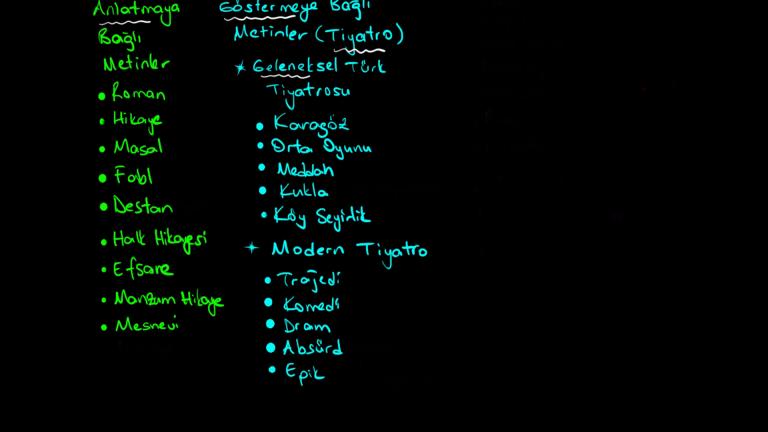 Anlatmaya
Bağlı
Metinler
• Roman
• Hikaye
• Masal
• Fabl
• Destan
• Halk Hikayesi
• Efsane
• Manzum Hikaye
• Mesnevi
Göstermeye Bağlı
Metinler (Tiyatro)
* Geleneksel Türk
Tiyatrosu
• Karagöz
• Orta Oyunu
• Meddah
• Kukla
• Köy Seyirlik
+ Modern Tiyatro
• Trajedi
• Komedi
• Dram
• Absürd
• Epik